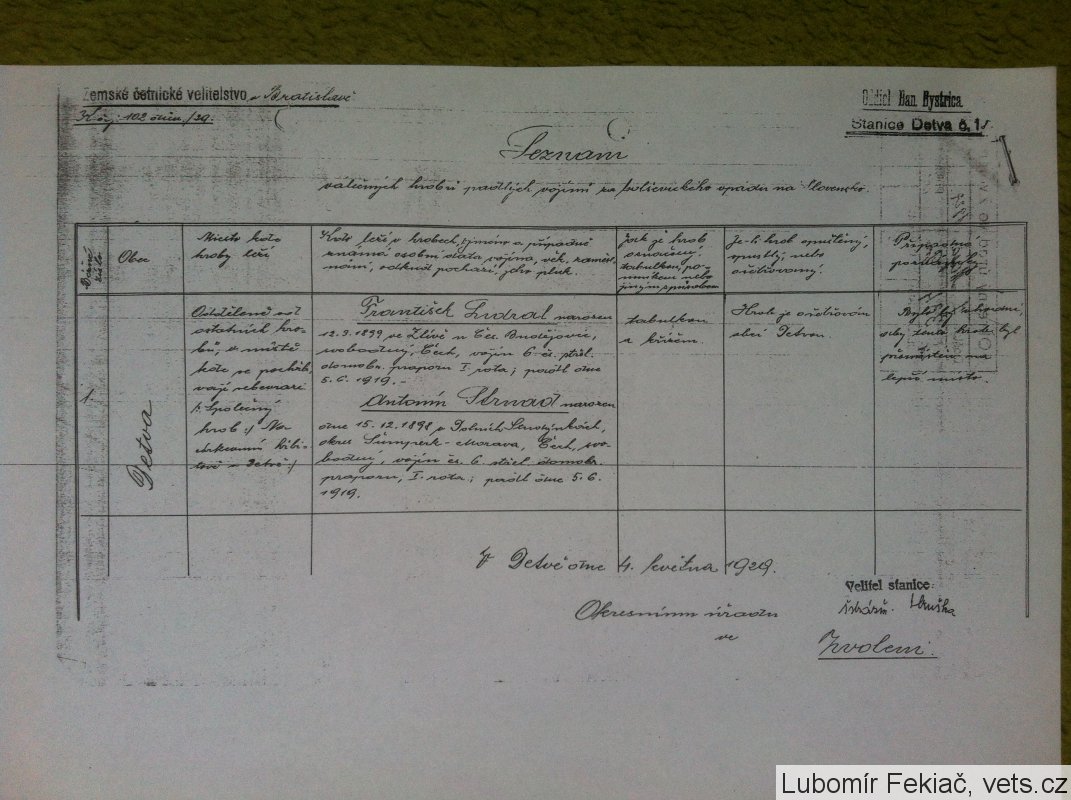 Zemské četnické velitelstvo v Bratislavě
102 /29.
Oddiel Ban. Bystrica
Stanice Detva č. 1
Seznam
válečných hrobů padlých vojínů za bolševického vpádu na Slovensko.
Běžné číslo
Obec
Miesto kde
hroby leží
Kdo leží v hrobech, jméno a případně
známá osobní data vojína, věk, zaměst-
nání, odkud pochází, jeho pluk.
Jak je hrob
označený
tabulkou, po-
mníkem nebo
jiným spůsobem
Je-li hrob opuštěný,
spustlý, nebo
ošetřovaný.
Případné
1.
Detva
Odděleně od
ostatních hro-
bů, v místě
kde se pocháb-
vají
/: Společný
hrob :/
v Detvě :/
František narozen
12.3.1899 ve Zlivě u Čes. Budějovic,
svobodný, Čech, vojín 6 čs. střel.
domobr. praporu I. rota; padl dne
5.6. 1919. -
Antonín Strnad narozen
dne 15.12.1898 v Dolních
okres Šumperk - Morava, Čech, svo-
bodný, vojín čs. 6. střel. domobr.
praporu, I. rota; padl dne 5.6.
1919.
tabulkou
a křížem.
Hrob je ošetřován
obcí Detvou.
Bylo by záhodné,
aby tento hrob byl
přemístěn na
lepší místo.
V Detvě dne 4. května 1929.
Velitel stanice:
Okresnímu úřadu
ve
Zvoleni.
Lubomír Fekiač, vets.cz